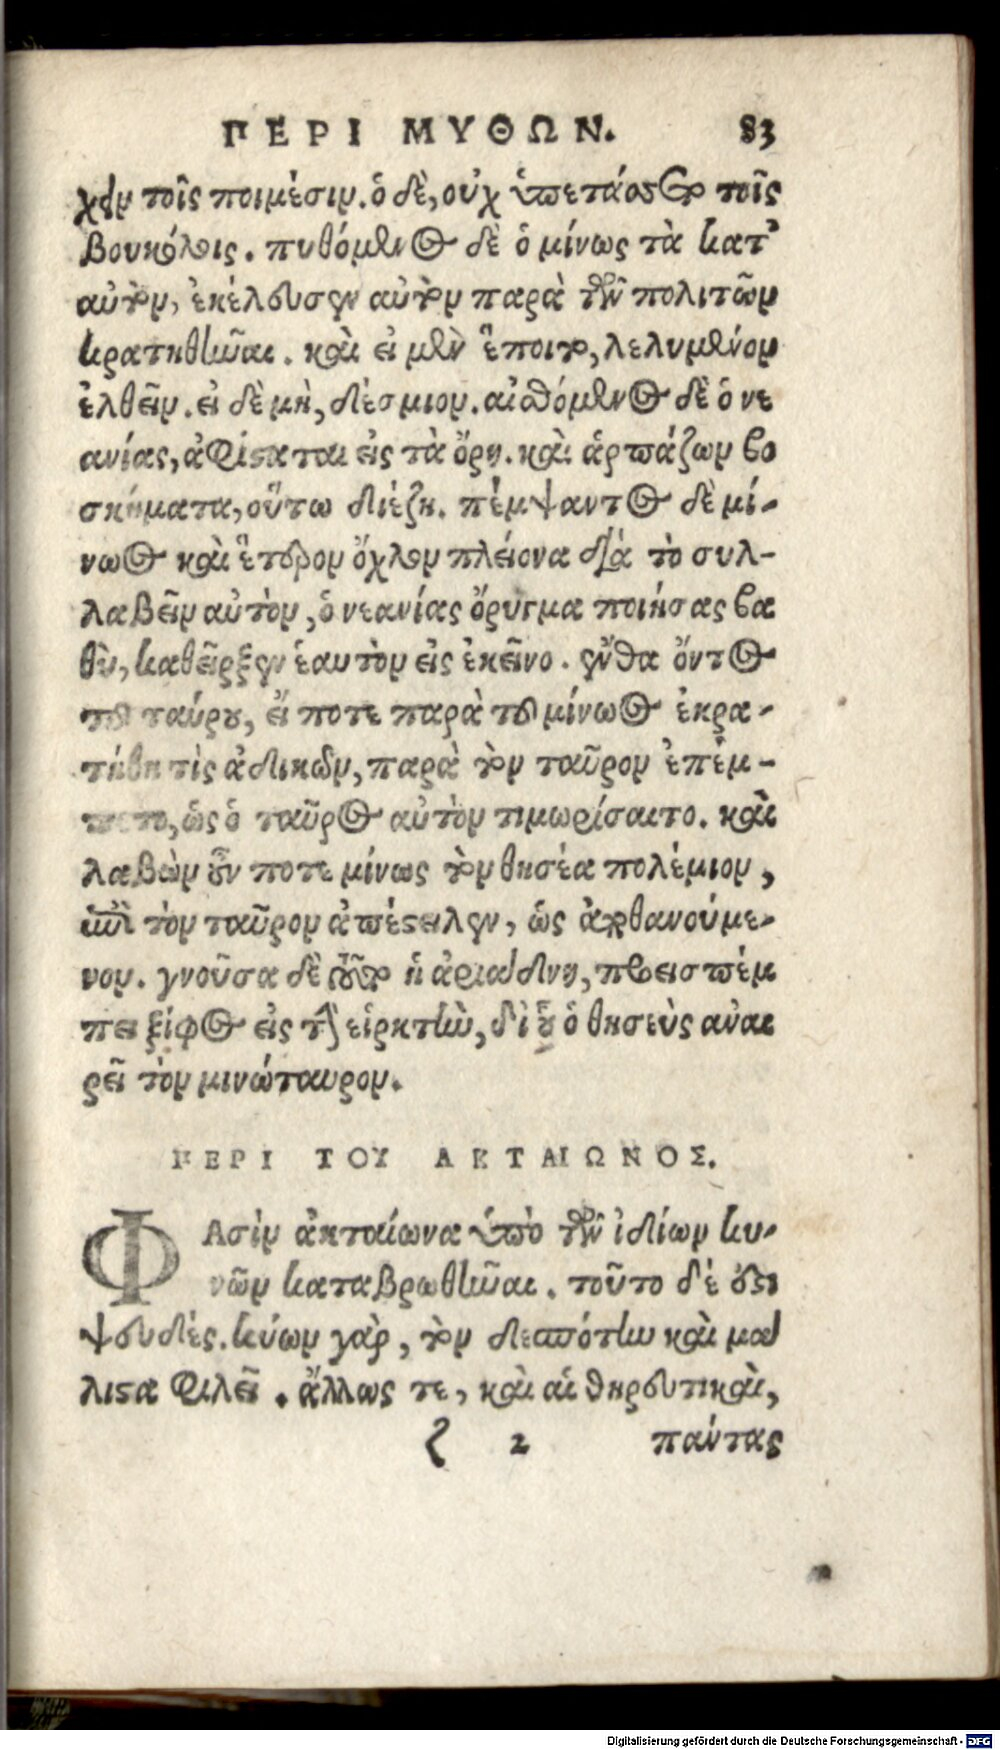 ΠΕΡΙ ΜΥΘΩΝ. 83
χειν τοῖς ποιμέσιν. ὁ δὲ, οὐχ ὑπετάσσετο τοῖς
βουκόλοις. πυθόμενος δὲ ὁ μίνως τὰ κατ'
αὐτὸν, ἐκέλευσεν αὐτὸν παρὰ τῶν πολιτῶν
κρατηθῆναι. καὶ εἰ μὲν ἕποιτο, λελυμένον
ἐλθεῖν. εἰ δὲ μὴ, δέσμιον. αἰσθόμενος δὲ ὁ νε
ανίας, ἀφίσταται εἰς τὰ ὄρη. καὶ ἁρπάζων βο
σκήματα, οὕτω διέζη. πέμψαντος δὲ μί-
νωος καὶ ἕτερον ὄχλον πλείονα διὰ τὸ συλ-
λαβεῖν αὐτὸν, ὁ νεανίας ὄρυγμα ποιήσας βα
θὺ, καθεῖρξεν ἑαυτὸν εἰς ἐκεῖνο. ἔνθα ὄντος
τοῦ ταύρου, εἴ ποτε παρὰ τοῦ μίνωος ἐκρα-
τήθη τὶς ἀδικῶν, παρὰ τὸν ταῦρον ἐπέμ-
πετο, ὡς ὁ ταῦρος αὐτὸν τιμωρίσαιτο. καὶ
λαβὼν οὖν ποτε μίνως τὸν θησέα πολέμιον,
ἐπὶ τὸν ταῦρον ἀπέστειλεν, ὡς ἀποθανούμε-
νον. γνοῦσα δὲ τοῦτο ἡ ἀριάδνη, προεισπέμ
πει ξίφος εἰς τὴν εἱρκτὴν, δι' οὗ ὁ θησεὺς αναι
ρεῖ τὸν μινώταυρον.
ΠΕΡΙ ΤΟΥ ΑΚΤΑΙΩΝΟΣ.
ΦΑσὶν ἀκταίωνα ὑπὸ τῶν ἰδίων κυ-
νῶν καταβρωθῆναι. τοῦτο δέ ἐστι
ψευδές. κύων γὰρ, τὸν δεσπότην καὶ μά
λιστα φιλεῖ. ἄλλως τε, καὶ αἱ θηρευτικαὶ,
ζ 2 πάντας
Digitalisierung gefördert durch die Deutsche Forschungsgemeinschaft - DFG